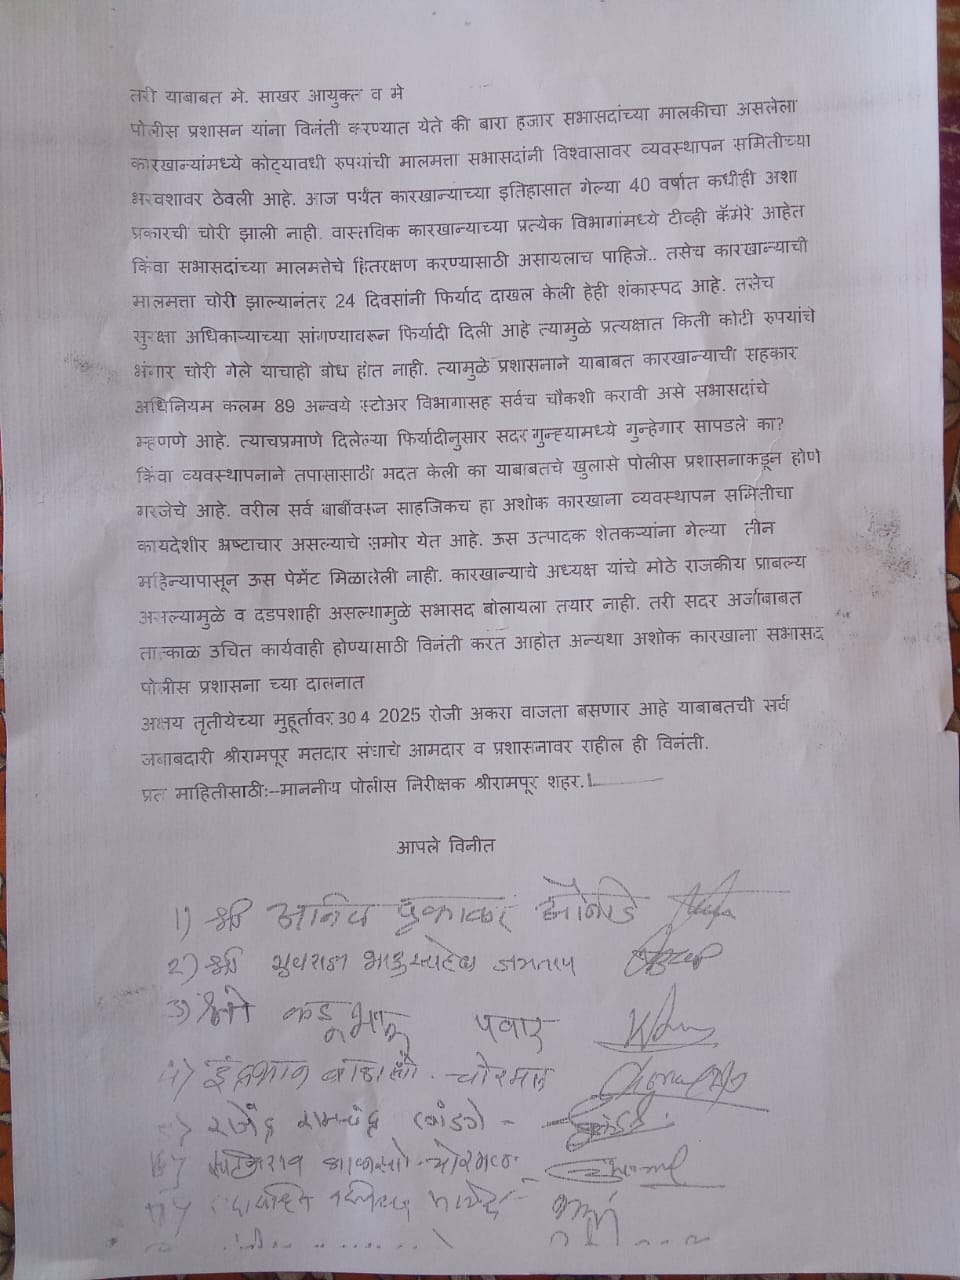 तरी याबाबत मे. साखर आयुक्त व मे
पोलीस प्रशासन यांना विनंती करण्यात येते की बारा हजार सभासदांच्या मालकीचा असलेला
कारखान्यांमध्ये कोट्यावधी रुपयांची मालमत्ता सभासदांनी विश्वासावर व्यवस्थापन समितीच्या
भरवशावर ठेवली आहे. आज पर्यंत कारखान्याच्या इतिहासात गेल्या 40 वर्षात कधीही अशा
प्रकारची चोरी झाली नाही. वास्तविक कारखान्याच्या प्रत्येक विभागांमध्ये टीव्ही कॅमेरे आहेत
किंवा सभासदांच्या मालमत्तेचे हितरक्षण करण्यासाठी असायलाच पाहिजे.. तसेच कारखान्याची
मालमत्ता चोरी झाल्यानंतर 24 दिवसांनी फिर्याद दाखल केली हेही शंकास्पद आहे. तसेच
सुरक्षा अधिकाऱ्याच्या सांगण्यावरून फिर्यादी दिली आहे त्यामुळे प्रत्यक्षात किती कोटी रुपयांचे
भंगार चोरी गेले याचाही बोध होत नाही. त्यामुळे प्रशासनाने याबाबत कारखान्याची सहकार
अधिनियम कलम 89 अन्वये स्टोअर विभागासह सर्वच चौकशी करावी असे सभासदांचे
म्हणणे आहे. त्याचप्रमाणे दिलेल्या फिर्यादीनुसार सदर गुन्ह्यामध्ये गुन्हेगार सापडले का?
किंवा व्यवस्थापनाने तपासासाठी मदत केली का याबाबतचे खुलासे पोलीस प्रशासनाकडून होणे
गरजेचे आहे. वरील सर्व बाबींवरून साहजिकच हा अशोक कारखाना व्यवस्थापन समितीचा
कायदेशीर भ्रष्टाचार असल्याचे समोर येत आहे. ऊस उत्पादक शेतकऱ्यांना गेल्या तीन
महिन्यापासून ऊस पेमेंट मिळालेली नाही. कारखान्याचे अध्यक्ष यांचे मोठे राजकीय प्राबल्य
असल्यामुळे व दडपशाही असल्यामुळे सभासद बोलायला तयार नाही. तरी सदर अर्जाबाबत
तात्काळ उचित कार्यवाही होण्यासाठी विनंती करत आहोत अन्यथा अशोक कारखाना सभासद
पोलीस प्रशासना च्या दालनात
अक्षय तृतीयेच्या मुहूर्तावर 30 4 2025 रोजी अकरा वाजता बसणार आहे याबाबतची सर्व
जबाबदारी श्रीरामपूर मतदार संघाचे आमदार व प्रशासनावर राहील ही विनंती.
प्रत माहितीसाठी:--माननीय पोलीस निरीक्षक श्रीरामपूर शहर.
आपले विनीत
1) श्री
2) श्री युवराज जगताप
3) श्री कडूभाऊ पवार
4) इंद्रभान चोरमल
राजेंद्र रामचंद्र
चोरमल